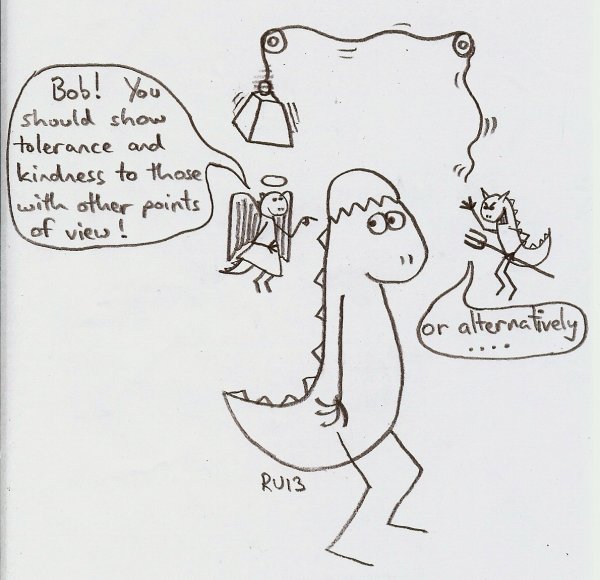 Bob! You
should show
tolerance and
kindness to those
with other points
of view!
or alternatively
....
RU13